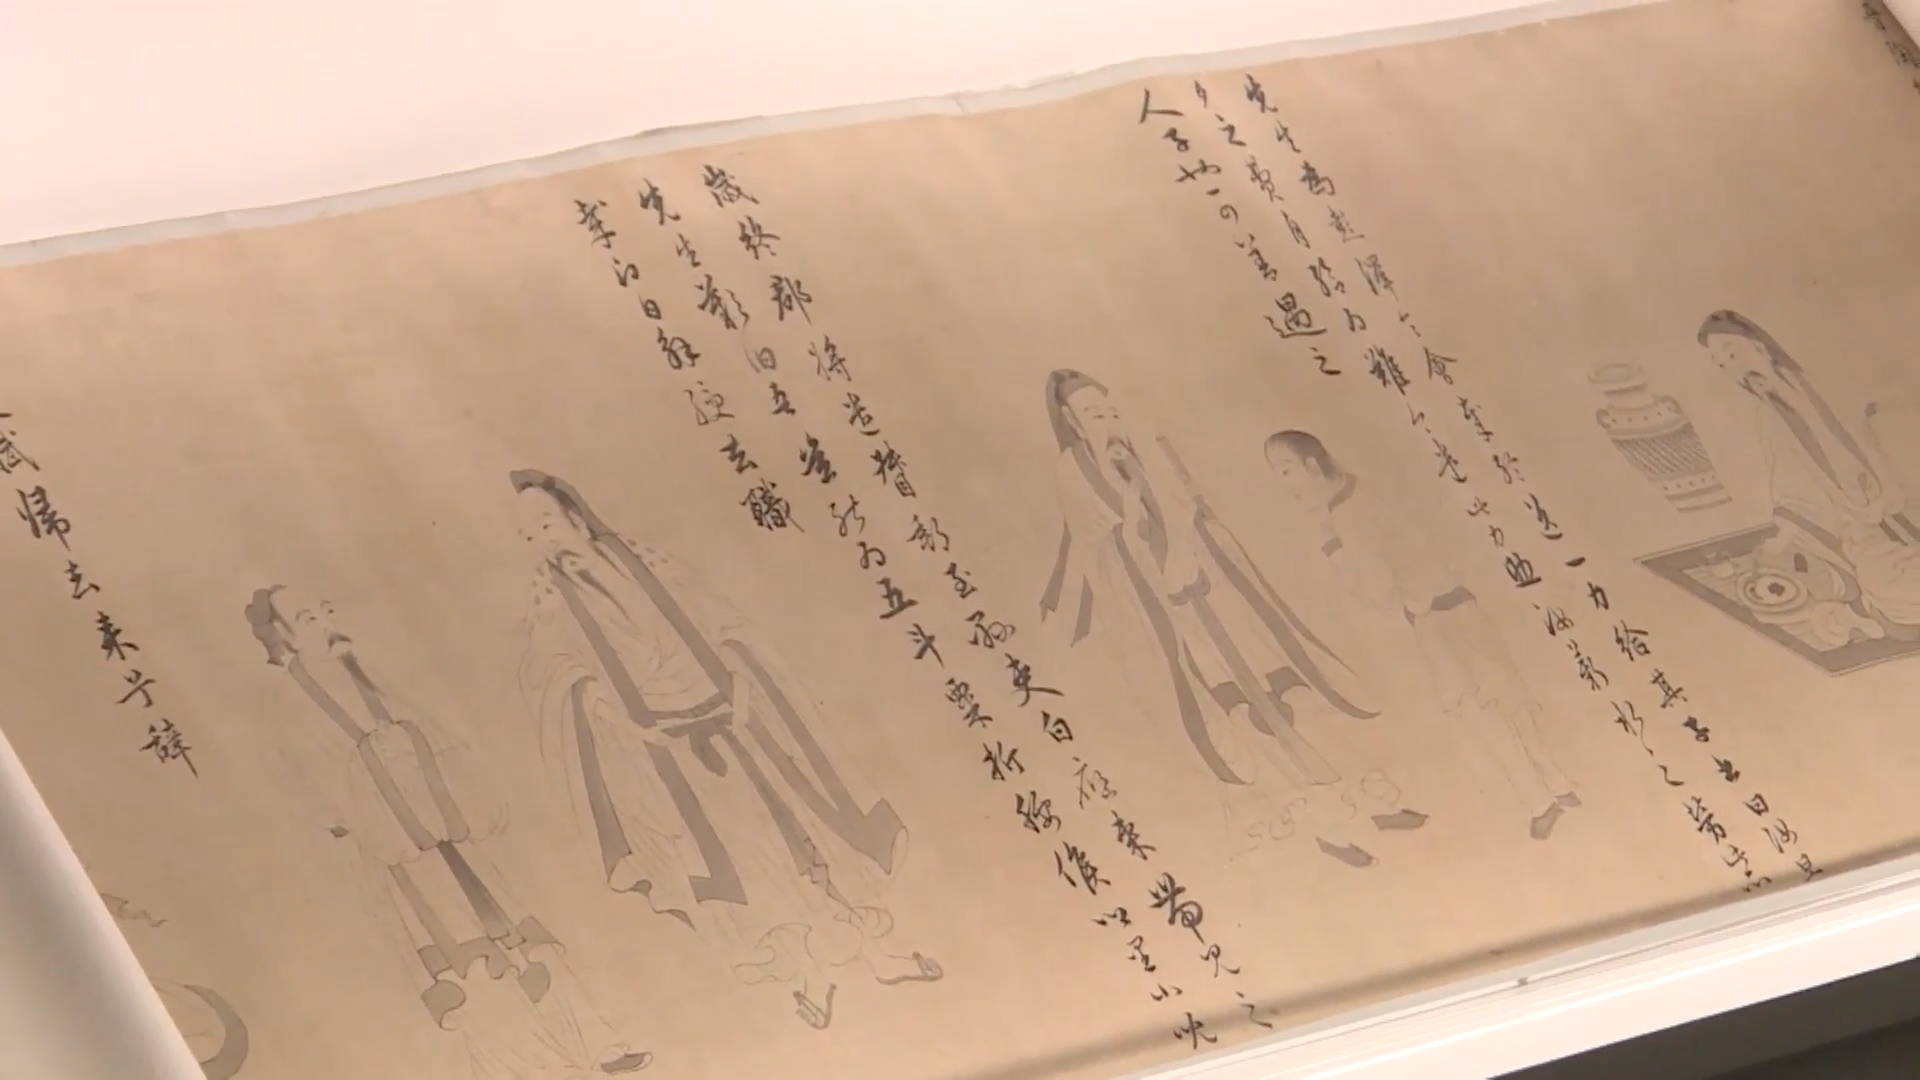 先生為彭澤令會送一力給其子書曰汝旦
夕之費自給為難今遣此力助汝薪水之勞此亦
人子也可善遇之
歲終郡將遣督郵至縣吏白應束帶見之
先生歎曰吾豈能為五斗粟折腰鄉里小
輩即日解綬去職
賦歸去来兮辭